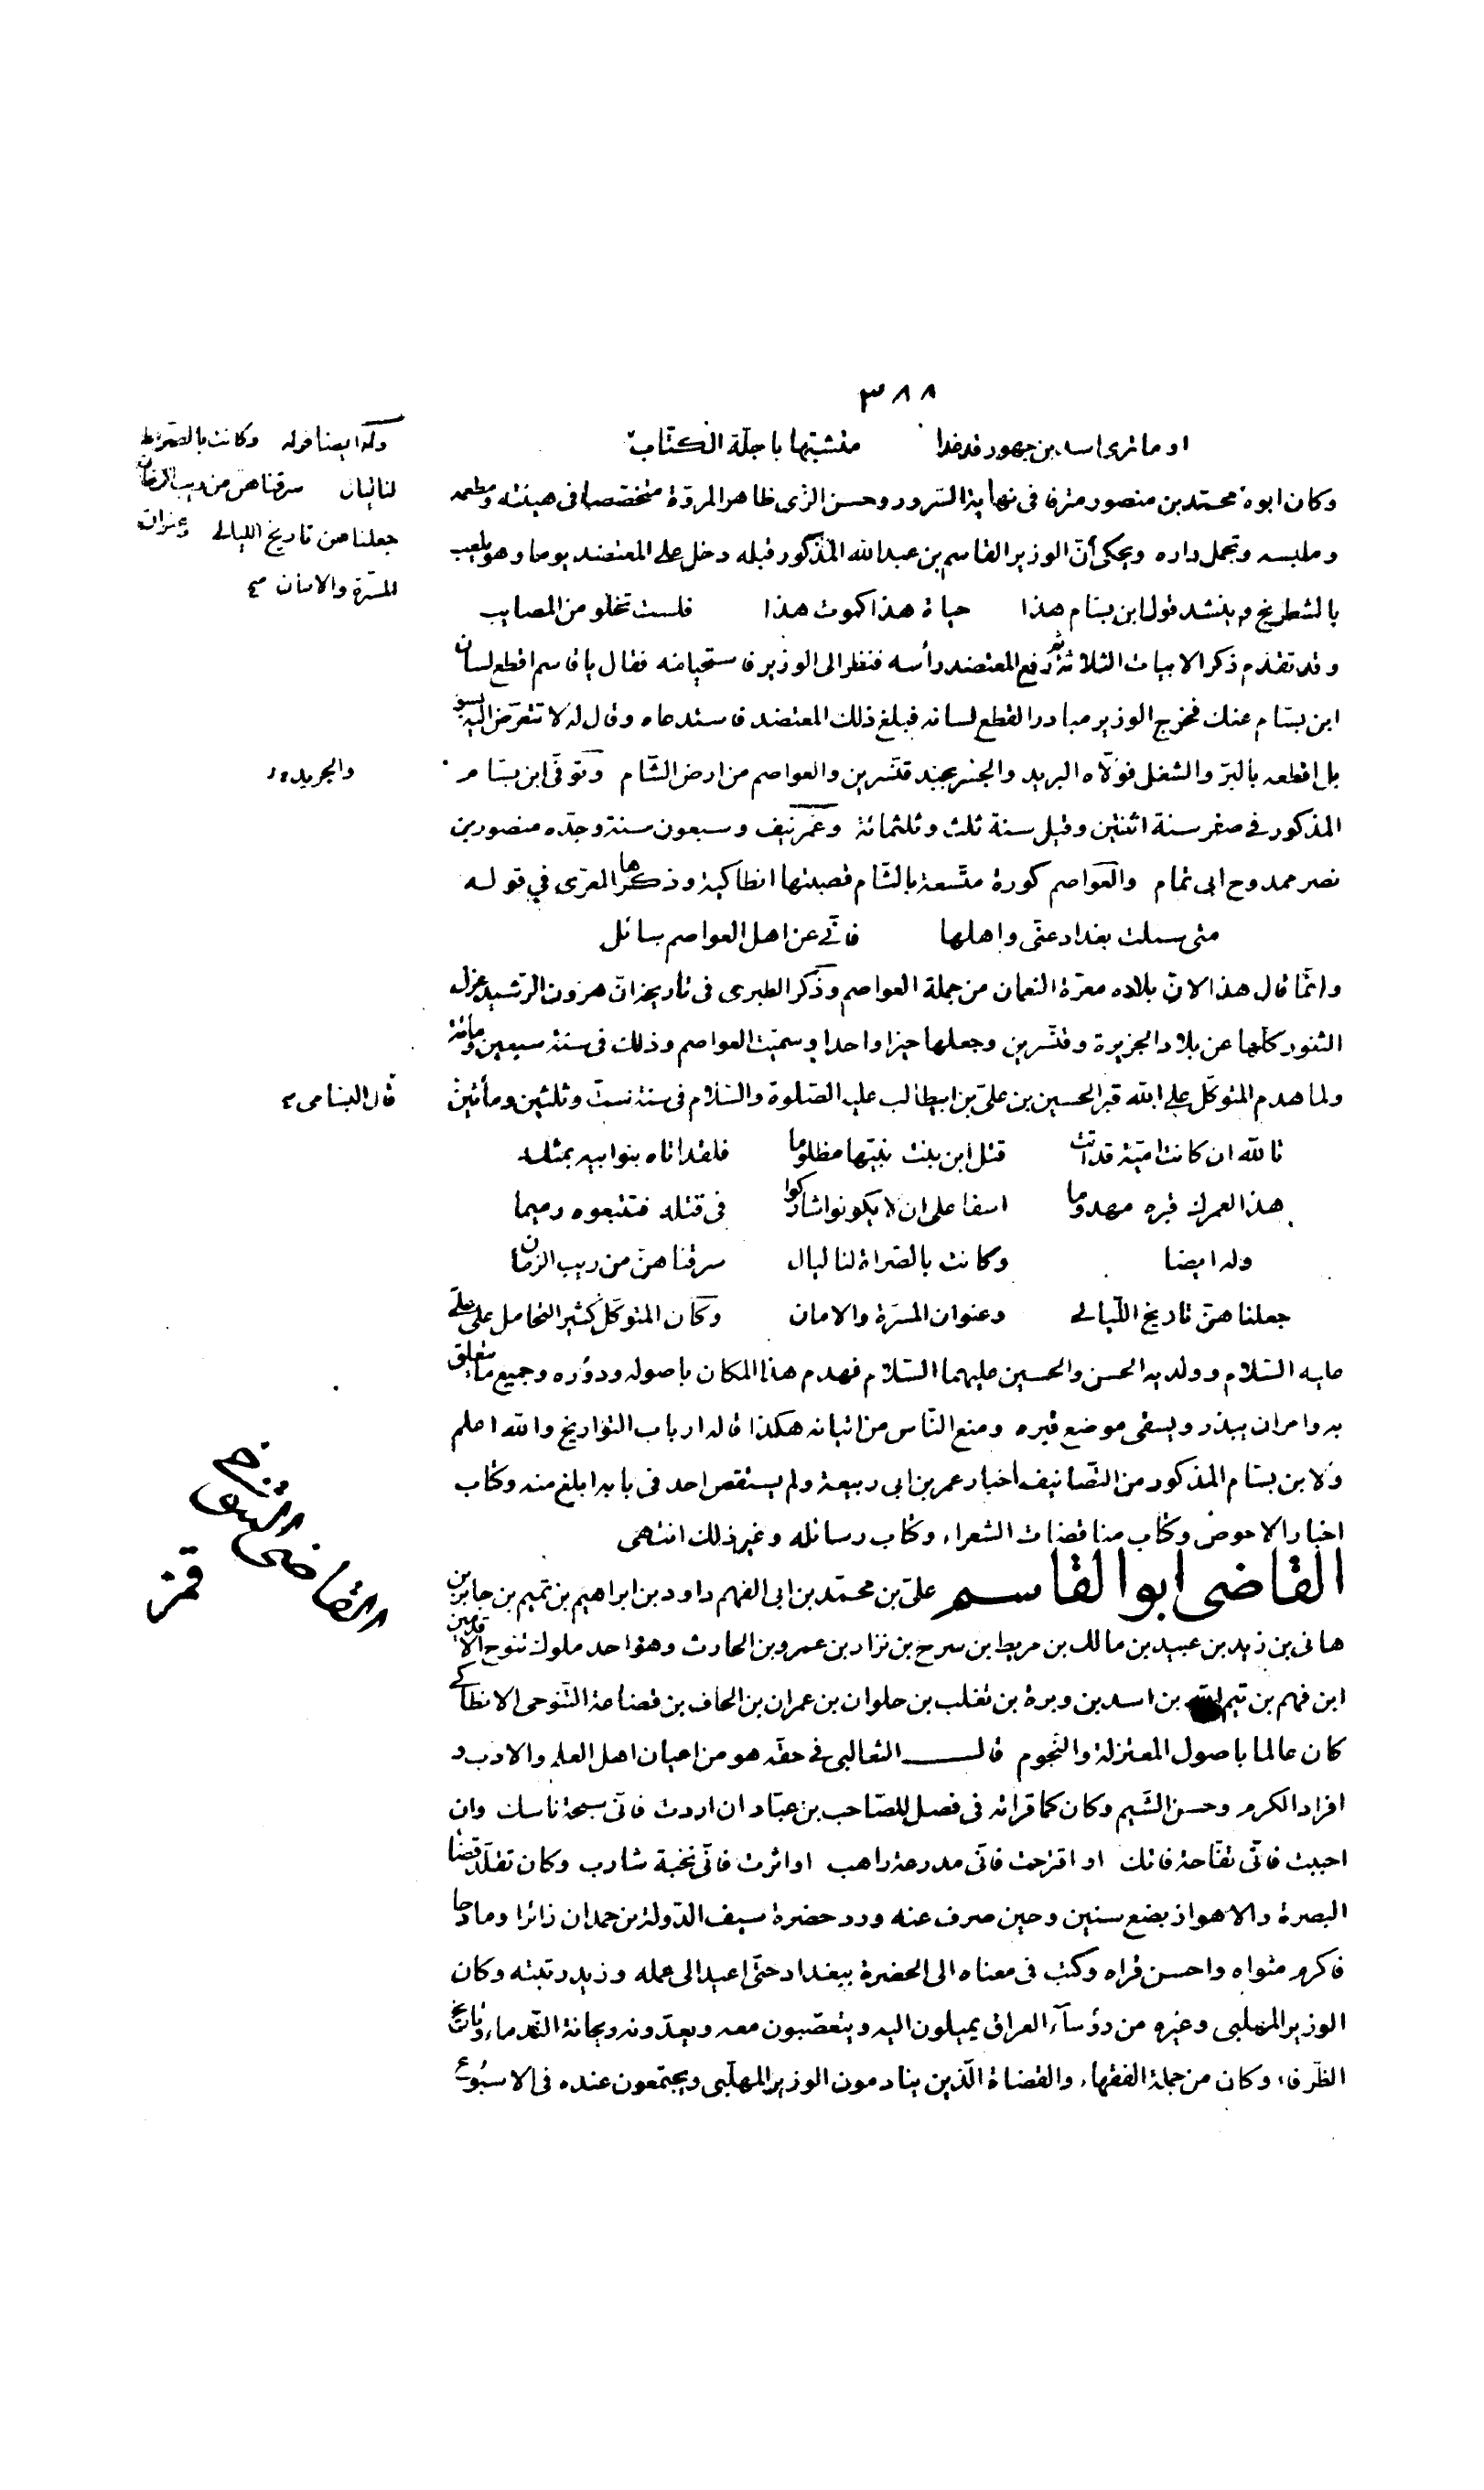 ٣٨٨
او ما ترى اسد بن جهور قد غدا متشبّها باجلّة الكتّاب
وكان ابوه محمّد بن منصور مترفا فى نهاية السّرور وحسن الزى ظاهر المروّة متخصّصا فى هيئته ومطعمه
وملبسه وتجمل داره ويحكى أنّ الوزير القاسم بن عبد الله المذكور قبله دخل على المعتضد يوما وهو يلعب
بالشطرنج وينشد قول ابن بسّام هذا حياة هذا كموت هذا فلست تخلو من المصايب
وقد تقدّم ذكر الابيات الثلاثة ثم رفع المعتضد رأسه فنظر الى الوزير فاستحيا منه فقال يا قاسم اقطع لسان
ابن بسّام عنك فخرج الوزير مبادرا لقطع لسانه فبلغ ذلك المعتضد فاستدعاه وقال له لا تتعرّض اليه بسوء
بل اقطعه بالبرّ والشغل فولّاه البريد والجسر بجند قنّسرين والعواصم من ارض الشّام وتوفّى ابن بسّام
المذكور فى صفر سنة اثنتين وقيل سنة ثلث وثلثمائة وعمر نيف وسبعون سنة وجدّه منصور بن
نصر ممدوح ابى تمام والعواصم كورة متّسعة بالشّام قصبتها انطاكية وذكرها المعرّى فى قوله
متى سئلت بغداد عنّى واهلها فانّى عن اهل العواصم سائل
وانّما قال هذا لانّ بلاده معرّة النعمان من جملة العواصم وذكر الطبرى فى تاريخه انّ هرون الرّشيد عزل
الثغور كلّها عن بلاد الجزيرة وقنّسرين وجعلها حيزا واحدا وسمّيت العواصم وذلك فى سنة سبعين ومائة
ولما هدم المتوكّل على الله قبر الحسين بن علىّ بن ابيطالب عليه الصّلوة والسّلام فى سنة ستّ وثلثين ومأتين
تالله ان كانت اميّة قد اتت قتل ابن بنت نبيّها مظلوما فلقد اتاه بنو ابيه بمثله
هذا لعمرك قبره مهدوما اسفا على ان لا يكونوا شاركوا فى قتله فتتبعوه رميما
وله ايضا وكانت بالصّراة لنا ليال سرقناهنّ من ريب الزّمان
جعلناهنّ تاريخ اللّيالى وعنوان المسرّة والامان وكان المتوكّل كثير التحامل على علىّ
عليه السّلام وولديه الحسن والحسين عليهما السّلام فهدم هذا المكان باصوله ودوره وجميع ما يتعلق
به وامر ان يبذر ويسقى موضع قبره ومنع النّاس من اتيانه هكذا قاله ارباب التواريخ والله اعلم
ولابن بسّام المذكور من التّصانيف اخبار عمر بن ابى ربيعة ولم يستقص احد فى بابه ابلغ منه وكتاب
اخبار الاحوص وكتاب مناقضات الشعراء وكتاب رسائله وغير ذلك انتهى
القاضى ابو القاسم علىّ بن محمّد بن ابى الفهم داود بن ابراهيم بن تميم بن جابر بن
هانى بن زيد بن عبيد بن مالك بن مريط بن سرح بن نزار بن عمرو بن الحارث وهو احد ملوك تنوخ الاقدمين
ابن فهم بن تيم الله بن اسد بن وبرة بن تغلب بن حلوان بن عمران بن الحاف بن قضاعة التّنوخى الانطاكى
كان عالما باصول المعتزلة والنّجوم قال الثعالبى فى حقّه هو من اعيان اهل العلم والادب و
افراد الكرم وحسن الشّيم وكان كما قرأته فى فصل للصّاحب بن عبّاد ان اردت فانّى سبحة ناسك وان
احببت فانّى تفّاحة فاتك او اقترحت فانّى مدرعة راهب او اثرت فانّى نخبة شارب وكان تقلّد قضاء
البصرة والاهواز بضع سنين وحين صرف عنه ورد حضرة سيف الدّولة بن حمدان زائرا ومادحا
فاكرم مثواه واحسن قراه وكتب فى معناه الى الحضرة ببغداد حتّى اعيد الى عمله وزيد رتبته وكان
الوزير المهلبى وغيره من رؤسآء العراق يميلون اليه ويتعصّبون معه ويعدّونه ريحانة النّدماء وتاريخ
الظّرفاء وكان من جملة الفقهاء والقضاة الّذين ينادمون الوزير المهلّبى ويجتمعون عنده فى الاسبوع
وله ايضا قوله وكانت بالصّراة
لنا ليال سرقناهنّ من ريب الزمان
جعلناهن تاريخ الليالى وعنوان
المسرّة والامان
والجريدة
قال البسّامى
القاضى التنوخى